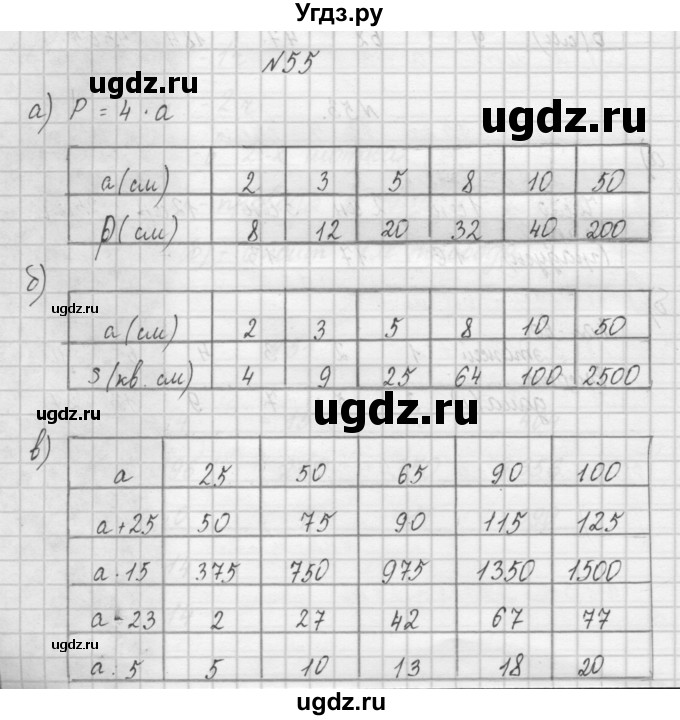 Угдз.ру
№55
ugdz.ru
ugdz.ru
а) P = 4 · a
a (см) 2 3 5 8 10 50
P (см) 8 12 20 32 40 200
б)
ugdz.ru
a (см) 2 3 5 8 10 50
S (кв. см) 4 9 25 64 100 2500
ugdz.ru
ugdz.ru
в)
a 25 50 65 90 100
a + 25 50 75 90 115 125
a · 15 375 750 975 1350 1500
a - 23 2 27 42 67 77
ugdz.ru
ugdz.ru
a : 5 5 10 13 18 20
ugdz.ru